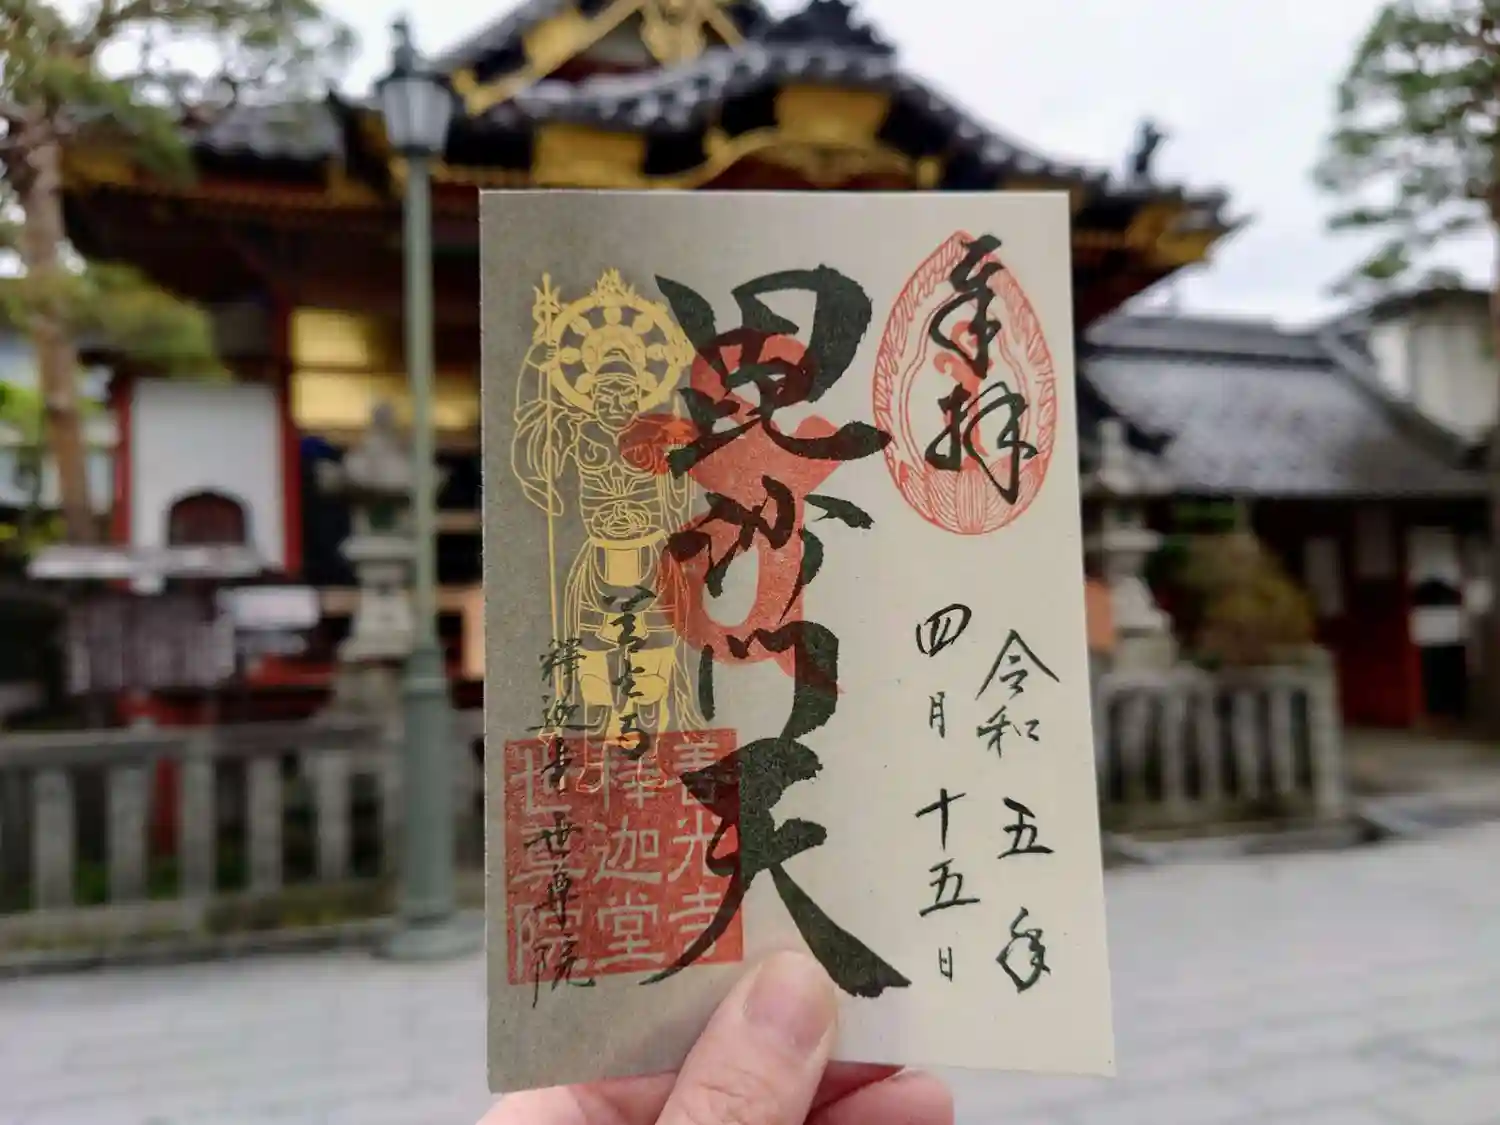 奉拝
令和五年
四月十五日
毘沙門天
善光寺
釋迦堂
世尊院
善光寺
釋迦堂世尊院